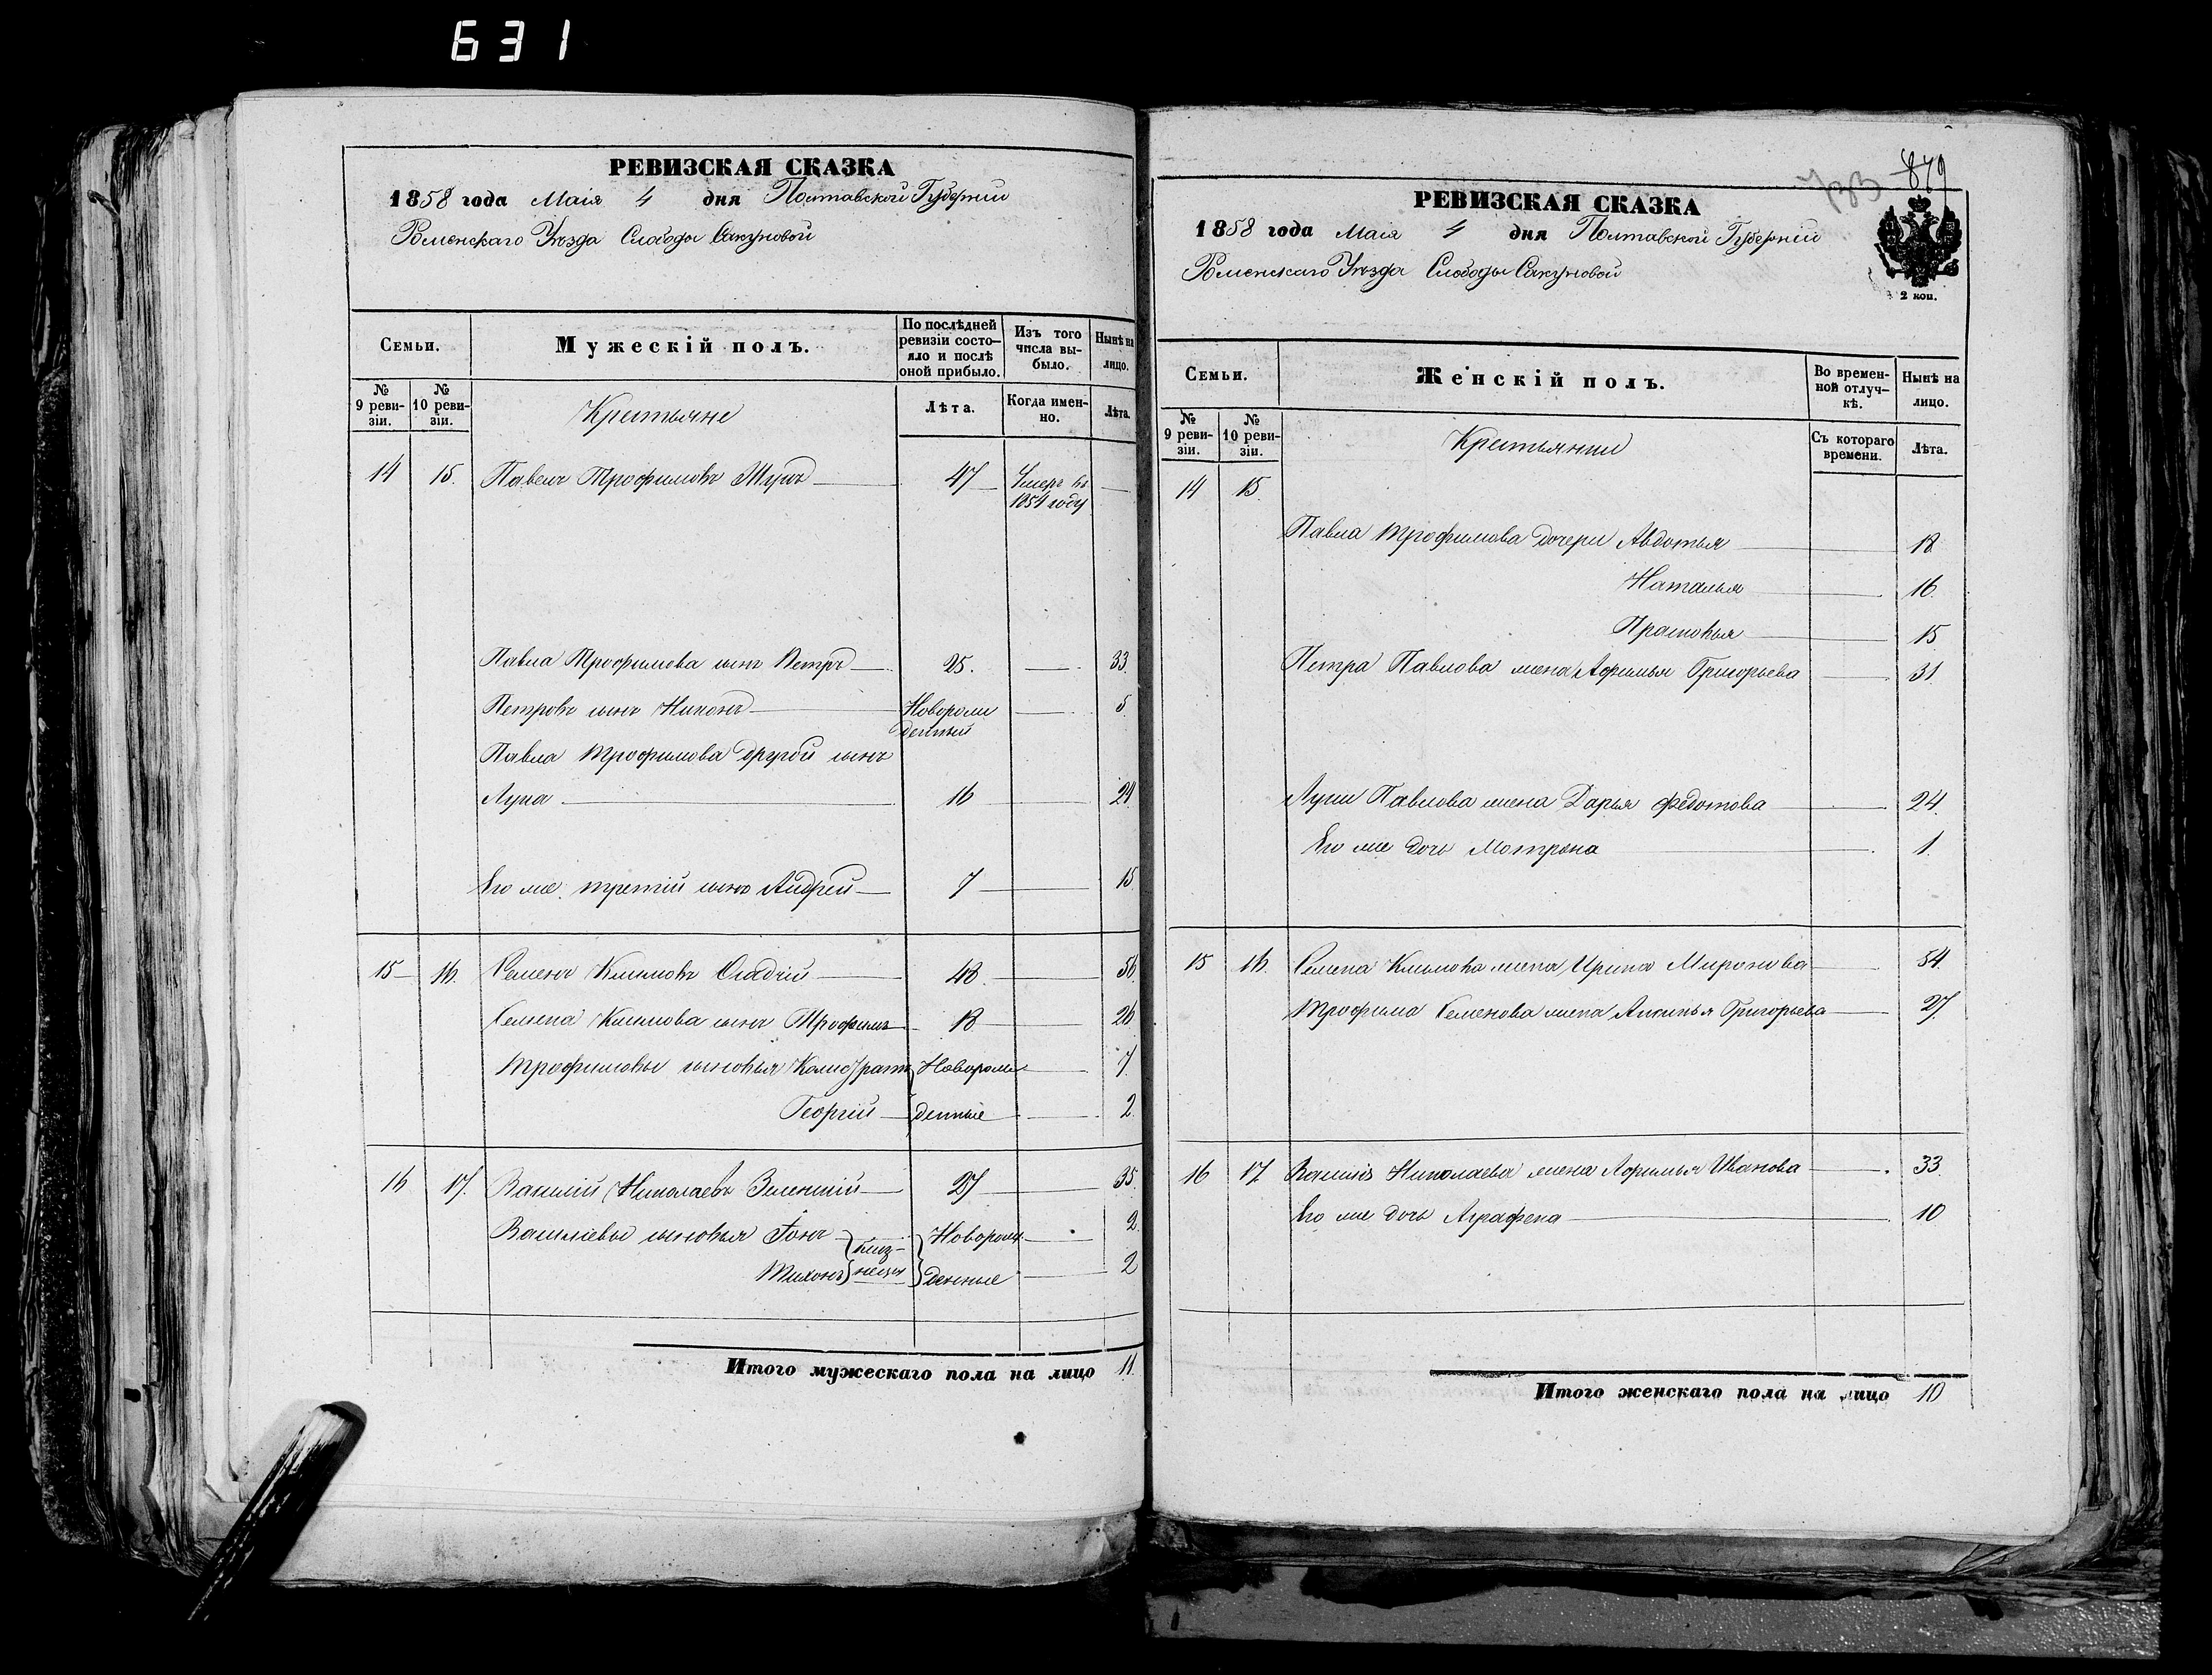 631
РЕВИЗСКАЯ СКАЗКА
1858 года Маія 4 дня Полтавской Губерніи
Роменскаго Уѣзда Слободы Сакуновой
Семьи.
Мужескій полъ.
По послѣдней ревизіи состо-
яло и послѣ оной прибыло.
Изъ того числа вы-
было.
Нынѣ на лицо.
№ 9 реви-
зіи.
№ 10 реви-
зіи.
Крестьяне
Лѣта.
Когда имен-
но.
Лѣта.
14 15. Павелъ Трофимовъ 47 Умеръ въ
1854 году
Павла Трофимова сынъ Петръ 25. 33
Петровъ сынъ Никонъ Новорож 5
денный
Павла Трофимова другой сынъ
Лука 16 24
Его же третій сынъ Андрей 7 15
15 16. Семенъ Климовъ 48. 56
Семена Климова сынъ Трофимъ 18 26
Трофимовы сыновья Калистратъ Новорож 7
Георгій денные 2
16 17. Василій Николаевъ Зеленскій 27 35.
Васильевы сыновья близ- Новорож 2
Тихонъ нецы денные 2
Итого мужескаго пола на лицо 11
879
РЕВИЗСКАЯ СКАЗКА
1858 года Маія 4 дня Полтавской Губерніи
Роменскаго Уѣзда Слободы Сакуновой
2 коп.
Семьи.
Женскій полъ.
Во времен-
ной отлуч-
кѣ.
Нынѣ на лицо.
№ 9 реви-
зіи.
№ 10 реви-
зіи.
Крестьянки
Съ котораго времени.
Лѣта.
14 15.
Павла Трофимова дочери Авдотья 18
Наталья 16.
Прасковья 15
Петра Павлова жена Афимья Григорьева 31
Луки Павлова жена Дарья Федотова 24.
Его же дочь Мотрона 1.
15 16. Семена Климова жена Ирина Миронова 54.
Трофима Семенова жена Аксинья Григорьева 27
16 17 Василія Николаева жена Афимья Иванова 33
Его же дочь Аграфена 10
Итого женскаго пола на лицо 10